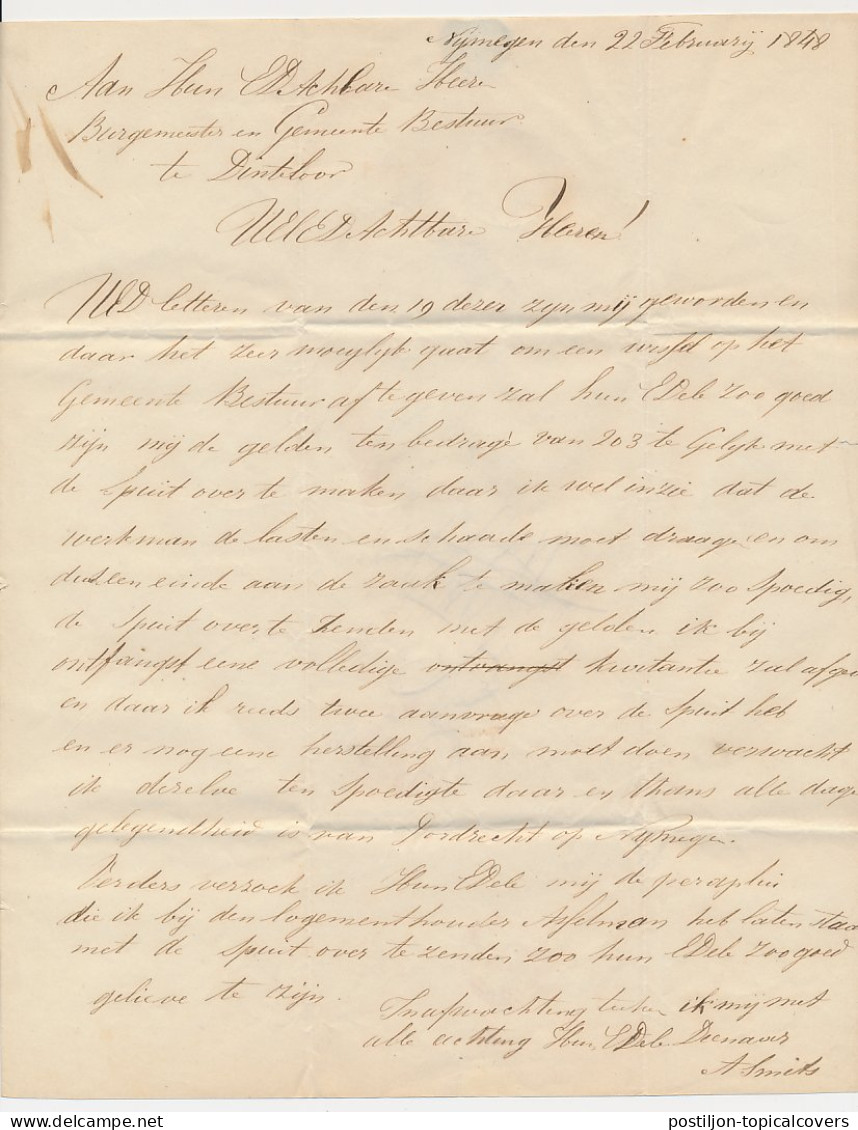 Nijmegen den 22 Februarij 1848
Aan Hun EDAchtbare Heere
Burgemeester en Gemeente Bestuur
te Dinteloor
WelEDAchtbare Heeren!
UED letteren van den 19 dezer zijn mij geworden en
daar het zeer moeylyk gaat om een wissel op het
Gemeente Bestuur af te geven zal hun EDele zoo goed
zijn mij de gelden ten bedrage van 203 te Gelyk met
de Spuit over te maken daar ik wel inzie dat de
werkman de lasten en schaade moet draage en om
dus een einde aan de zaak te maken mij zoo spoedig
de spuit over te zenden met de gelden ik bij
ontfangst eene volledige ontvangst kwitantie zal afge
en daar ik reeds twee aanvrage over de spuit heb
en er nog eene herstelling aan moet doen verwacht
ik dezelve ten spoedigte daar er thans alle dage
gelegendheid is van Dordrecht op Nijmegen.
Verders verzoek ik Hun EDele mij de peraplui
die ik bij den logementhouder Asselman heb laten staa
met de spuit over te zenden zoo hun EDele zoo goed
gelieve te zijn.
In afwachting teeken ik mij met
alle achting Hun EDele Dienaar
A Smits
postiljon-topicalcovers